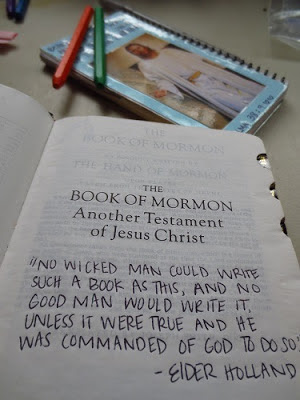 THE
BOOK OF MORMON
THE HAND OF MORMON
THE
BOOK OF MORMON
Another Testament
of Jesus Christ
"NO WICKED MAN COULD WRITE
SUCH A BOOK AS THIS, AND NO
GOOD MAN WOULD WRITE IT,
UNLESS IT WERE TRUE AND HE
WAS COMMANDED OF GOD TO DO SO"
- ELDER HOLLAND